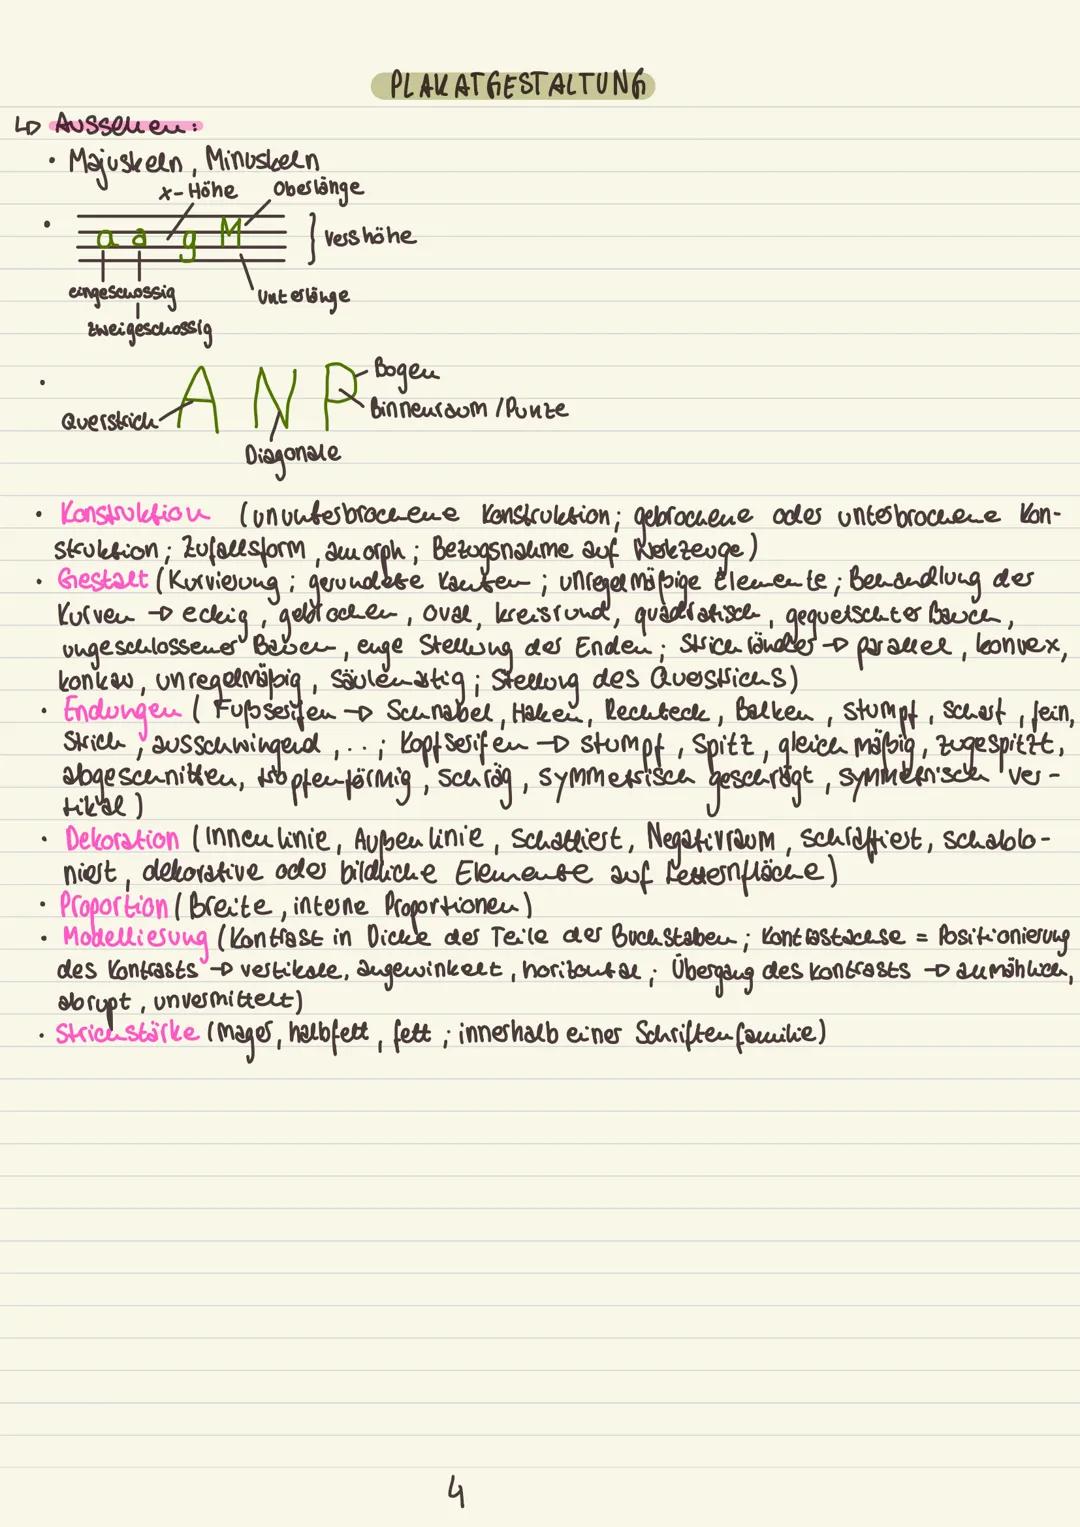 PLAKATGESTALTUNG
↳ Aussehen:
• Majuskeln, Minuskeln
x-Höhe Oberlänge
• a a g M } Vershöhe
eingeschossig Unterlänge
zweigeschossig
• A N P Bogen
Querstrich Binnenraum / Punze
Diagonale
• Konstruktion (ununterbrochene Konstruktion; gebrochene oder unterbrochene Kon-
struktion; Zufallsform, amorph; Bezugsnahme auf Werkzeuge)
• Gestalt (Kurvierung; gerundete Kanten; unregelmäßige Elemente; Behandlung der
Kurven → eckig, gebrochen, oval, kreisrund, quadratisch, gequetschter Bauch,
ungeschlossener Bauch, enge Stellung der Enden; Strichränder → parallel, konvex,
konkav, unregelmäßig, säulenartig; Stellung des Querstrichs)
• Endungen (Fußserifen → Schnabel, Haken, Rechteck, Balken, stumpf, scharf, fein,
Strich, ausschwingend, ..; Kopfserifen → stumpf, spitz, gleichmäßig, zugespitzt,
abgeschnitten, tropfenförmig, schräg, symmetrisch geschrägt, symmetrisch ver-
tikal)
• Dekoration (Innenlinie, Außenlinie, schattiert, Negativraum, schraffiert, schablo-
niert, dekorative oder bildliche Elemente auf Letternfläche)
• Proportion (Breite, interne Proportionen)
• Modellierung (Kontrast in Dicke der Teile der Buchstaben; Kontrastachse = Positionierung
des Kontrasts → vertikale, angewinkelt, horizontal; Übergang des Kontrasts → allmählich,
abrupt, unvermittelt)
• Strichstärke (mager, halbfett, fett; innerhalb einer Schriftenfamilie)
4